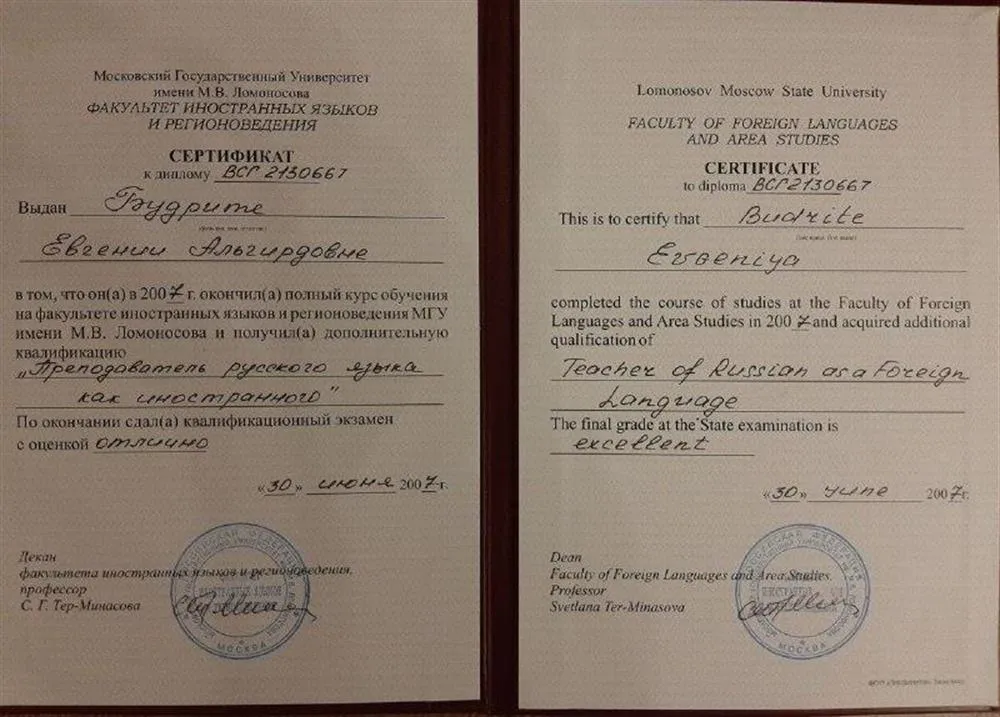 Московский Государственный Университет
имени М.В. Ломоносова
ФАКУЛЬТЕТ ИНОСТРАННЫХ ЯЗЫКОВ
И РЕГИОНОВЕДЕНИЯ
СЕРТИФИКАТ
к диплому ВСГ 2130667
Выдан Будрите
Евгении Альгирдовне
в том, что он(а) в 2007 г. окончил(а) полный курс обучения
на факультете иностранных языков и регионоведения МГУ
имени М.В. Ломоносова и получил(а) дополнительную
квалификацию
„Преподаватель русского языка
как иностранного"
По окончании сдал(а) квалификационный экзамен
с оценкой отлично
«30» июня 2007 г.
Декан
факультета иностранных языков и регионоведения,
профессор
С. Г. Тер-Минасова
МОСКВА
Lomonosov Moscow State University
FACULTY OF FOREIGN LANGUAGES
AND AREA STUDIES
CERTIFICATE
to diploma ВСГ2130667
This is to certify that Budrite
Evgeniya
completed the course of studies at the Faculty of Foreign
Languages and Area Studies in 2007 and acquired additional
qualification of
Teacher of Russian as a Foreign
Language
The final grade at the State examination is
excellent
«30» 2007г.
Dean
Faculty of Foreign Languages and Area Studies
Professor
Svetlana Ter-Minasova
МОСКВА